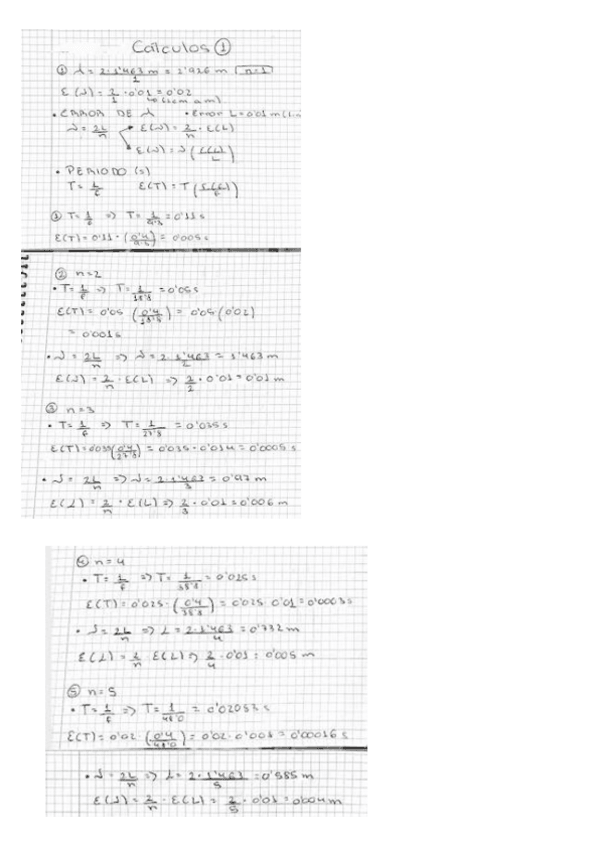 Cálculos ①
① λ = 2·1'463 m / 1 = 2'926 m n=1
ε(λ) = 2/1 · 0'01 = 0'02
(1cm a m)
• ERROR DE λ • Error L = 0'01 m
λ = 2L/n ε(λ) = 2/n · ε(L)
ε(λ) = λ (ε(L)/L)
• PERIODO (s)
T = 1/f ε(T) = T (ε(f)/f)
① T = 1/f => T = 1/9'3 = 0'11 s
ε(T) = 0'11 · (0'4/9'3) = 0'005 s
② n=2
• T = 1/f => T = 1/18'8 = 0'05 s
ε(T) = 0'05 (0'4/18'8) = 0'05 (0'02)
= 0'001 s
• λ = 2L/n => λ = 2·1'463/2 = 1'463 m
ε(λ) = 2/n · ε(L) => 2/2 · 0'01 = 0'01 m
③ n=3
• T = 1/f => T = 1/27'8 = 0'035 s
ε(T) = 0'035 (0'4/27'8) = 0'035 · 0'014 = 0'0005 s
• λ = 2L/n => λ = 2·1'463/3 = 0'97 m
ε(λ) = 2/n · ε(L) => 2/3 · 0'01 = 0'006 m
④ n=4
• T = 1/f => T = 1/38'8 = 0'025 s
ε(T) = 0'025 · (0'4/38'8) = 0'025 · 0'01 = 0'0003 s
• λ = 2L/n => λ = 2·1'463/4 = 0'732 m
ε(λ) = 2/n ε(L) => 2/4 · 0'01 = 0'005 m
⑤ n=5
• T = 1/f => T = 1/48'0 = 0'02053 s
ε(T) = 0'02 · (0'4/48'0) = 0'02 · 0'008 = 0'00016 s
• λ = 2L/n => λ = 2·1'463/5 = 0'585 m
ε(λ) = 2/n · ε(L) = 2/5 · 0'01 = 0'004 m